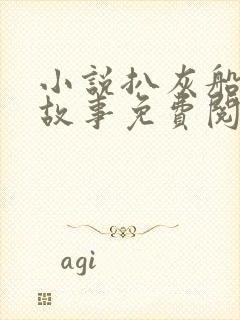 小説扒灰船
故事免費閱
agi